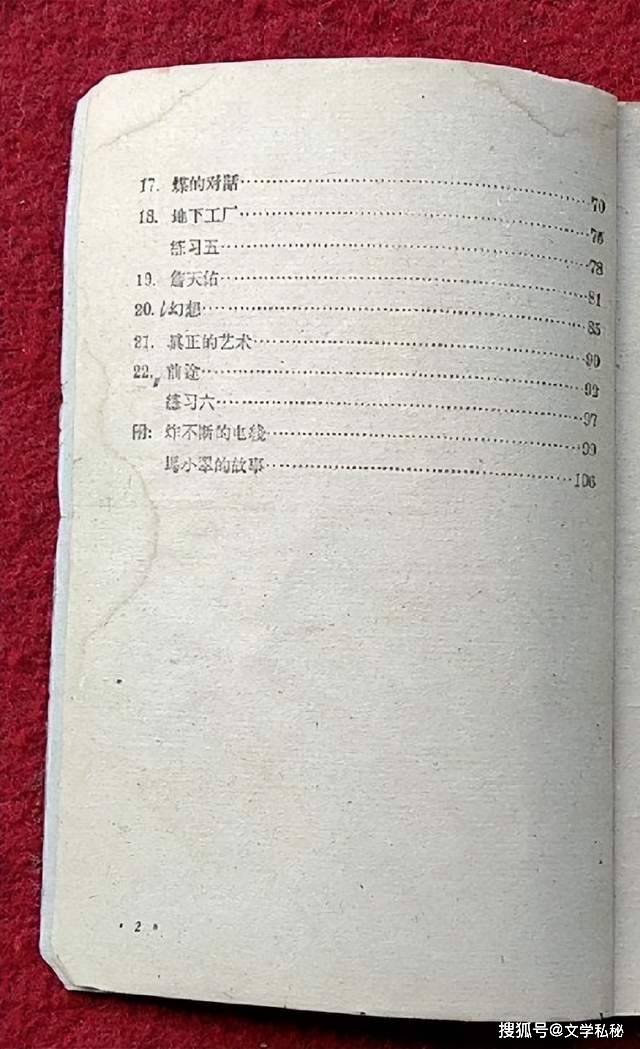 17. 煤的对話……70
18. 地下工厂……75
练习五……78
19. 詹天佑……81
20. 幻想……85
21. 真正的艺术……90
22. 前途……92
练习六……97
附: 炸不断的电线……99
馬小翠的故事……106
· 2 ·
搜狐号@文学私秘